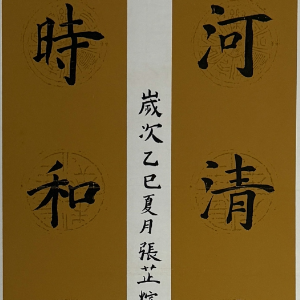 河清
時和
歲次乙巳夏月張芷